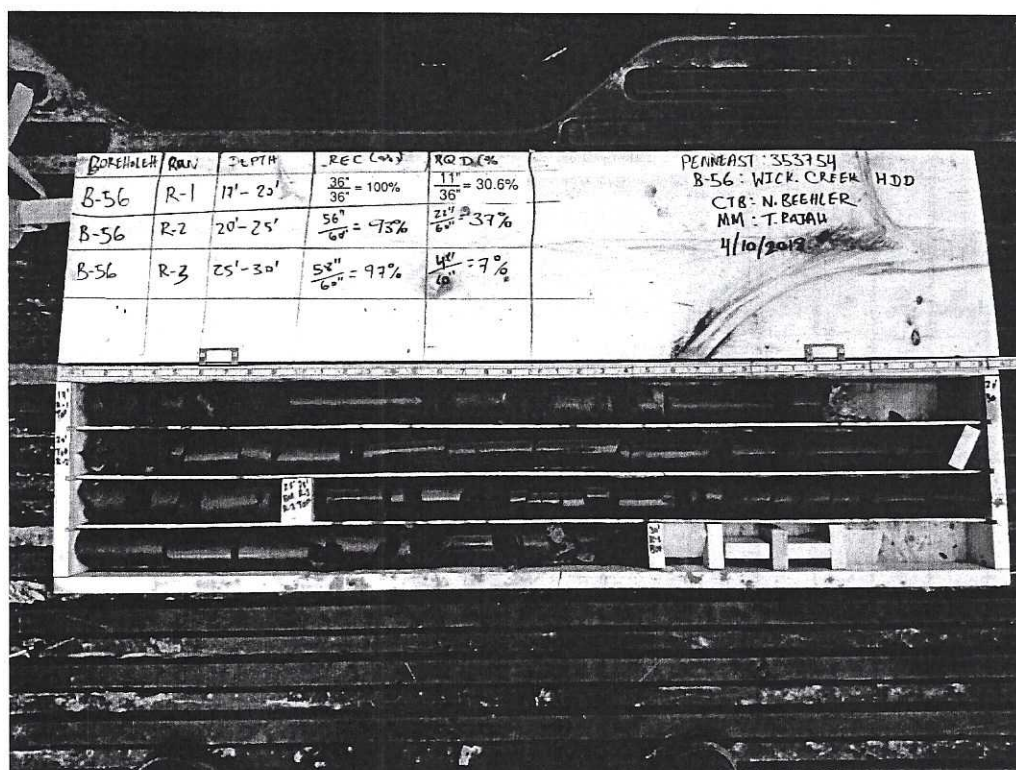 BOREHOLE# RUN DEPTH REC (%) RQD (%
B-56 R-1 17'-20' 36"/36" = 100% 11"/36" = 30.6%
B-56 R-2 20'-25' 56"/60" = 93% 22"/60" = 37%
B-56 R-3 25'-30' 58"/60" = 97% 4"/60" = 7%
PENNEAST: 353754
B-56: WICK. CREEK HDD
CTB: N. BEEHLER
MM: T. RAJAH
4/10/2018